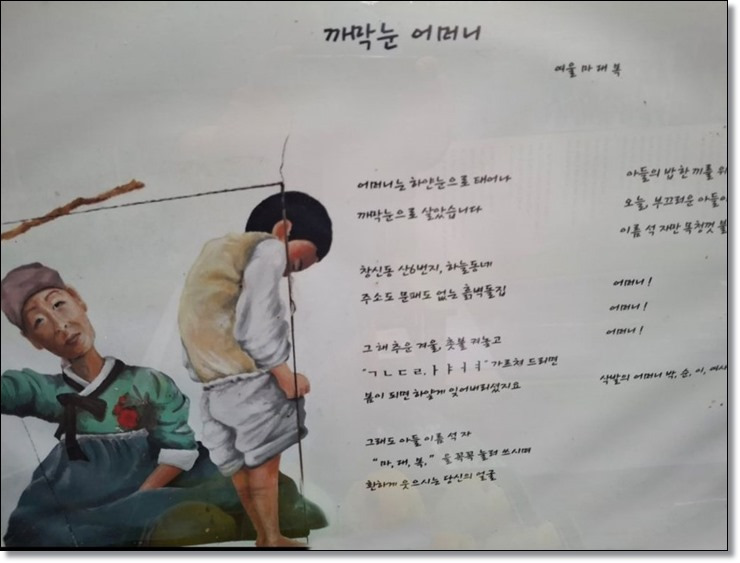 깨막눈 어머니
여울 마 래 복
어머니는 하얀눈으로 태어나
깨막눈으로 살았습니다
창신동 산6번지, 하늘동네
주소도 문패도 없는 흙벽돌집
그 해 추운 겨울, 촛불 켜놓고
"ㄱ ㄴ ㄷ ㄹ, ㅏ ㅑ ㅓ ㅕ" 가르쳐 드리면
봄이 되면 하얗게 잊어버리셨지요
그래도 아들 이름 석 자
"마, 래, 복," 을 꼭꼭 눌러 쓰시며
환하게 웃으시는 당신의 얼굴
아들의 밥 한 끼를 위
오늘, 부끄러운 아들이
이름 석 자만 목청껏 불
어머니 !
어머니 !
어머니 !
삭발의 어머니 박, 순, 이, 여사